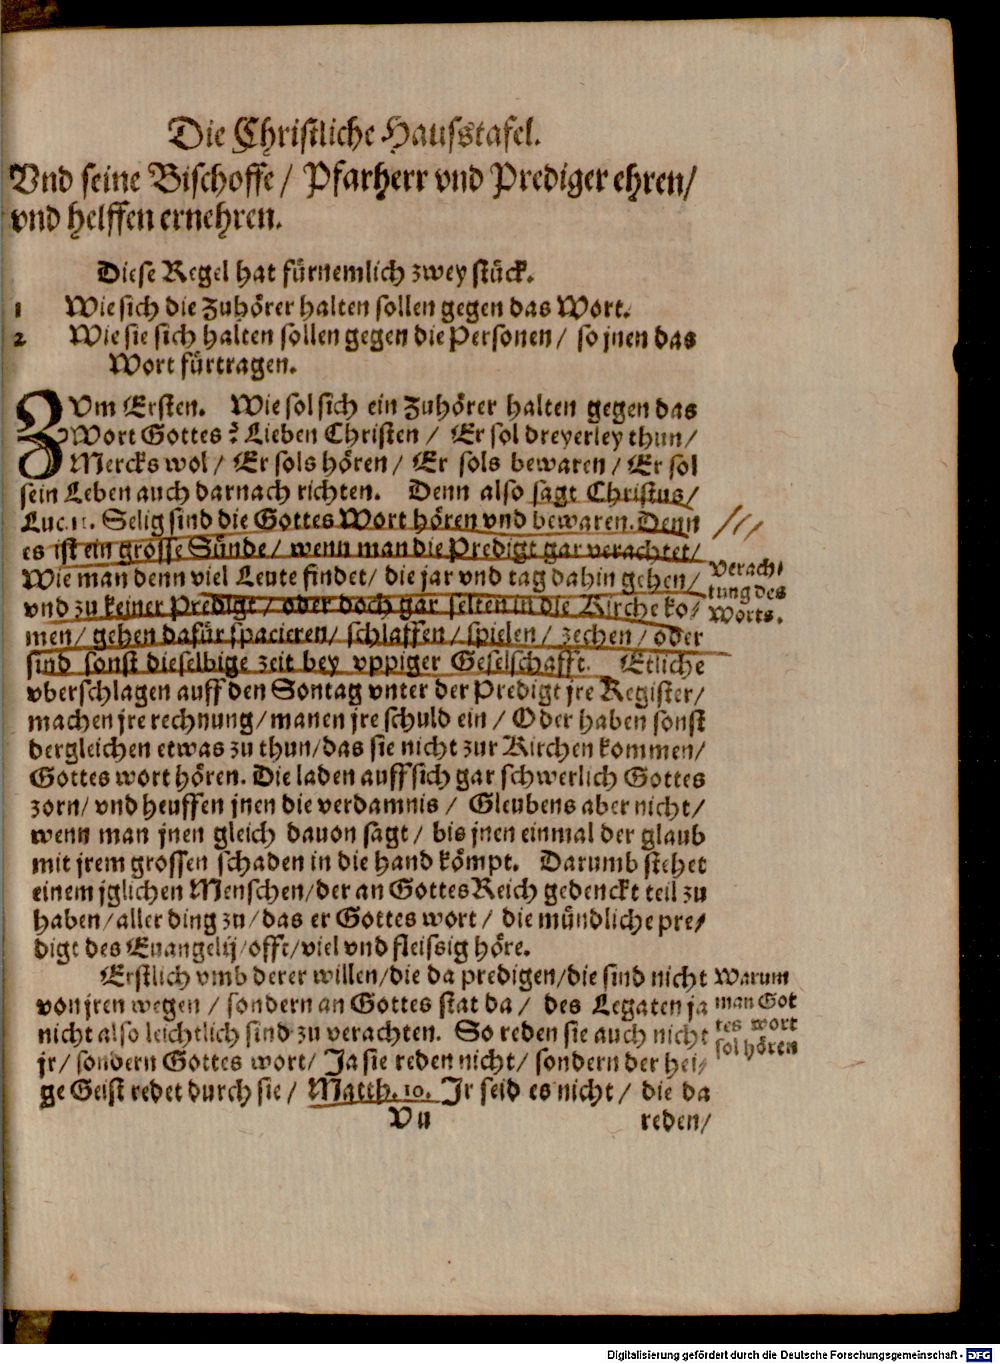 Die Christliche Haufstafel.
Vnd seine Bischoffe / Pfarherr vnd Prediger ehren/
vnd helffen ernehren.
Diese Regel hat fürnemlich zwey stück.
1 Wie sich die Zuhörer halten sollen gegen das Wort.
2 Wie sie sich halten sollen gegen die Personen / so jnen das
Wort fürtragen.
ZVm Ersten. Wie sol sich ein Zuhörer halten gegen das
Wort Gottes? Lieben Christen / Er sol dreyerley thun/
Mercks wol / Er sols hören / Er sols bewaren / Er sol
sein Leben auch darnach richten. Denn also sagt Christus/
Luc. 11. Selig sind die Gottes Wort hören vnd bewaren. Denn
es ist ein grosse Sünde / wenn man die Predigt gar verachtet/
Wie man denn viel Leute findet/ die jar vnd tag dahin gehen/
vnd zu keiner Predigt / oder doch gar selten in die Kirche ko-
men/ gehen dafür spacieren/ schlaffen / spielen / zechen / oder
sind sonst dieselbige zeit bey vppiger Geselschafft. Etliche
vberschlagen auff den Sontag vnter der Predigt jre Register/
machen jre rechnung/manen jre schuld ein / Oder haben sonst
dergleichen etwas zu thun/das sie nicht zur Kirchen kommen/
Gottes wort hören. Die laden auff sich gar schwerlich Gottes
zorn/ vnd heuffen jnen die verdamnis / Gleubens aber nicht/
wenn man jnen gleich dauon sagt / bis jnen einmal der glaub
mit jrem grossen schaden in die hand kömpt. Darumb stehet
einem jglichen Menschen/der an Gottes Reich gedenckt teil zu
haben/aller ding zu/das er Gottes wort / die mündliche pre-
digt des Euangelij/offt/viel vnd fleissig höre.
Erstlich vmb derer willen/die da predigen/die sind nicht
von jren wegen / sondern an Gottes stat da / des Legaten ja
nicht also leichtlich sind zu verachten. So reden sie auch nicht
jr/ sondern Gottes wort/ Ja sie reden nicht/ sondern der hei-
ge Geist redet durch sie / Matth. 10. Jr seid es nicht / die da
Vu reden/
Verach-
tung des
Worts.
Warum
man Got
tes wort
sol hören
Digitalisierung gefördert durch die Deutsche Forschungsgemeinschaft - DFG